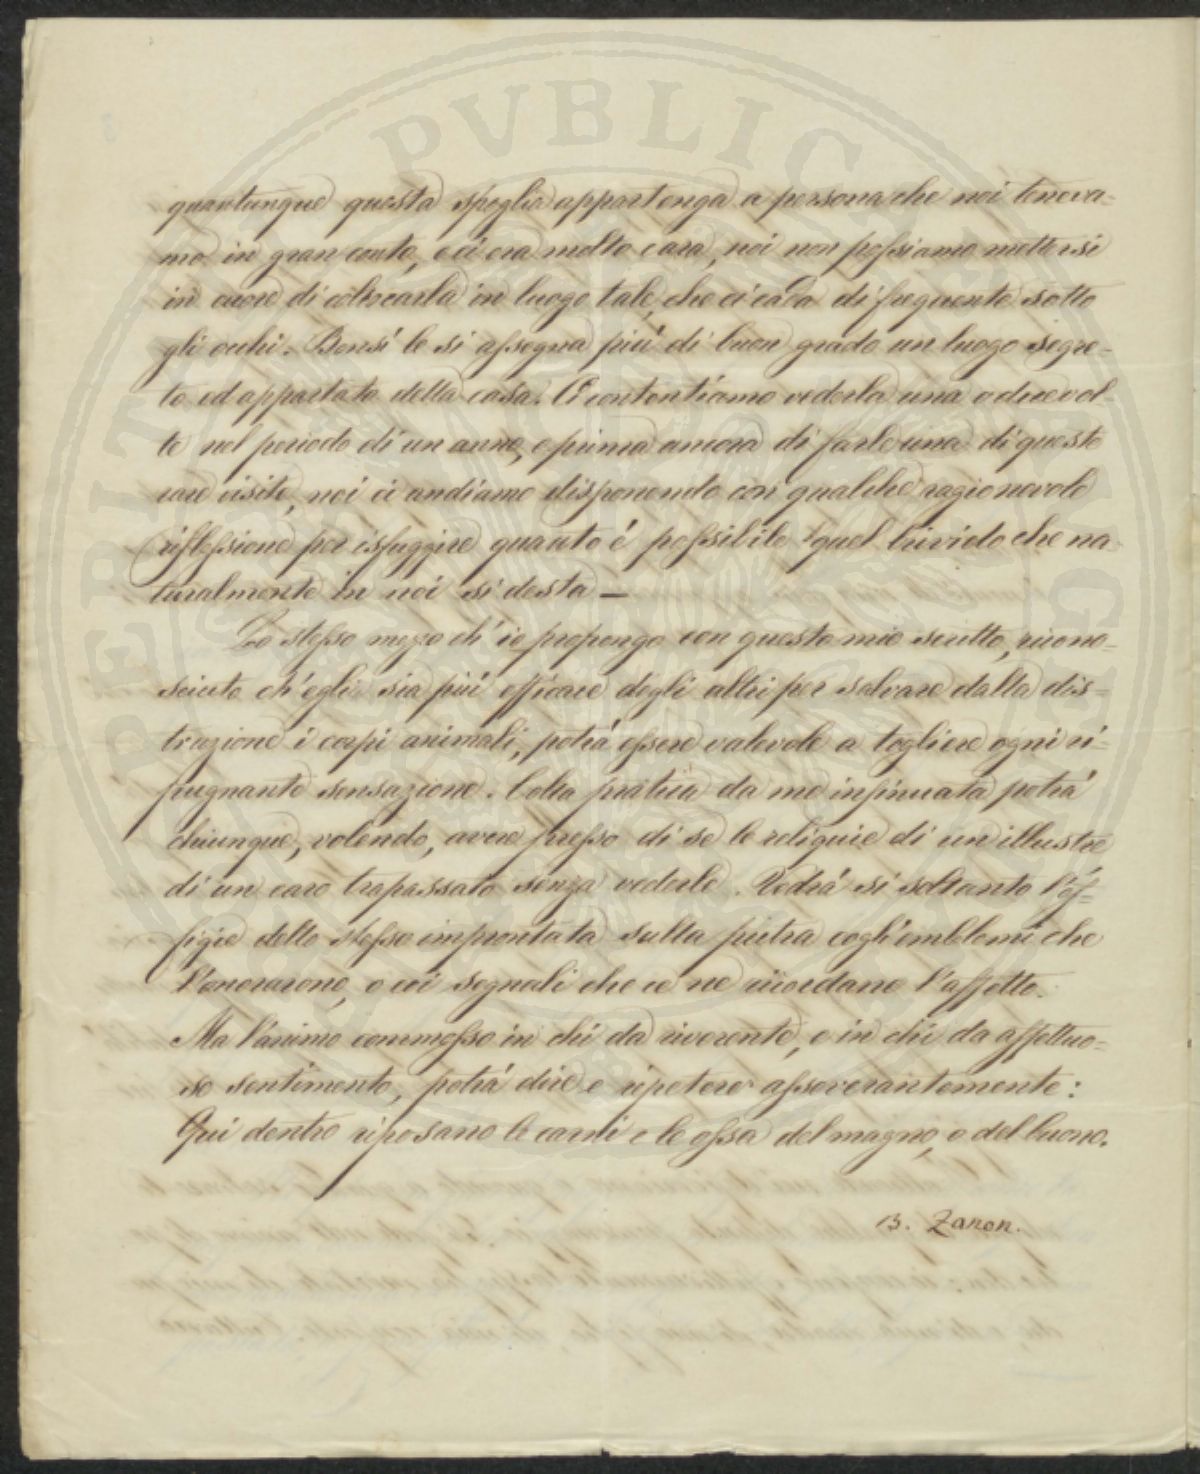 quantunque questa spoglia appartenga a persona che noi teneva-
mo in gran conto, e ci era molto cara, noi non possiamo mettersi
in cuore di collocarla in luogo tale, che ci cada di frequente sotto
gli occhi. Bensì le si assegna più di buon grado un luogo segre-
to ed appartato della casa. Ci contentiamo vederla una o due vol-
te nel periodo di un anno, e prima ancora di farle una di queste
rare visite, noi ci andiamo disponendo con qualche ragionevole
riflessione per isfuggire quanto è possibile quel brivido che na-
turalmente in noi si desta —
Lo stesso mezzo ch'io propongo con questo mio scritto, ricono-
sciuto ch'egli sia più efficace degli altri per salvare dalla dis-
truzione i corpi animali, potrà essere valevole a togliere ogni ri-
pugnante sensazione. Colla pratica da me insinuata potrà
chiunque, volendo, avere presso di se le reliquie di un illustre
di un caro trapassato senza vederle. Vedrà si soltanto l'ef-
figie dello stesso improntata sulla pietra cogli emblemi che
l'onorarono, o coi segnali che ce ne ricordano l'affetto.
Ma l'animo commosso in chi da riverente, e in chi da affettuo-
so sentimento, potrà dire e ripetere asseverantemente:
Qui dentro riposano le carni e le ossa del magno, o del buono.
B. Zanon.
PVBLIC